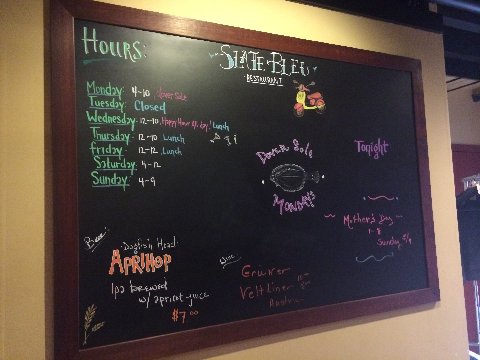 HOURS:
SLATE BLEU
RESTAURANT
Monday: 4-10 Dover Sole
Tuesday: Closed
Wednesday: 12-10, Happy Hour all day! Lunch
Thursday: 12-10 Lunch
Friday: 12-12, Lunch
Saturday: 4-12
Sunday: 4-9
Dover Sole
MONDAYS
Tonight
Mother's Day
1-8
Sunday
Beer:
Dogfish Head:
APRIHOP
IPA brewed
w/ apricot juice
$7.00
Wine
Gruner
Veltliner
Austria